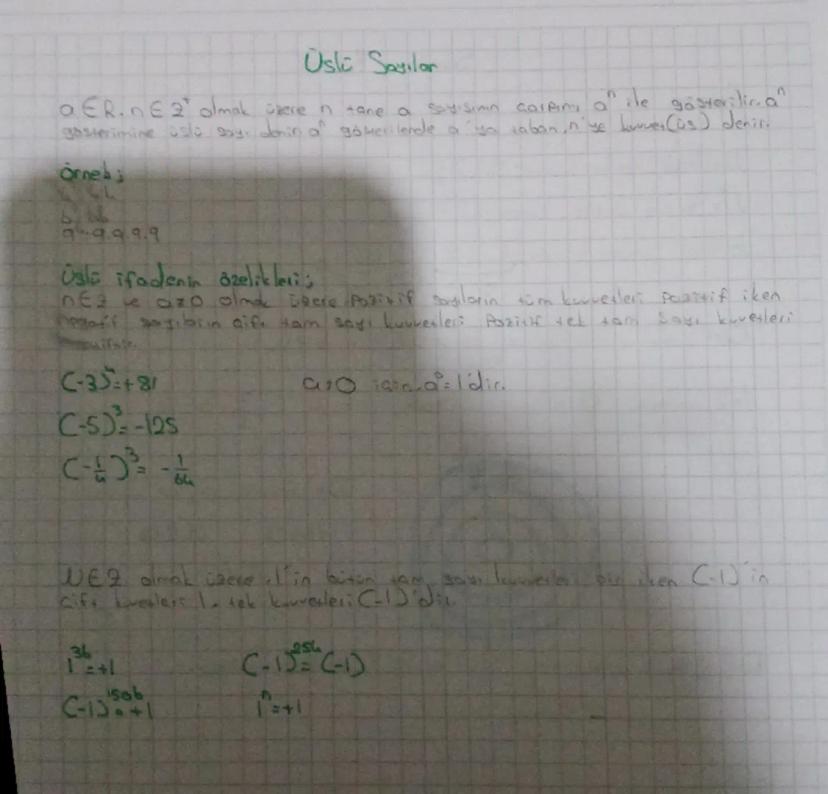 Üslü Sayılar
a∈R, n∈Z⁺ olmak üzere n tane a sayısının çarpımı aⁿ ile gösterilir. aⁿ
gösterimine üslü sayı denir aⁿ gösterilende a'ya taban, n'ye kuvvet (üs) denir.
Örnek;
9.9.9.9
Üslü ifadenin özelikleri;
n∈Z ve a≠0 olmak üzere Pozitif sayıların tüm kuvvetleri Pozitif iken
negatif sayıların çift tam sayı kuvvetleri Pozitif tek tam sayı kuvvetleri
(-3)⁴=+81
a≠0 için a⁰=1'dir.
(-5)³=-125
(-1/4)³=-1/64
N∈Z olmak üzere 1'in bütün tam sayı kuvvetleri bir iken (-1)'in
çift kuvvetleri 1, tek kuvvetleri (-1)'dir.
1³⁶=+1
(-1)²⁵⁴=(-1)
(-1)¹⁵⁰⁶=+1
1ⁿ=+1